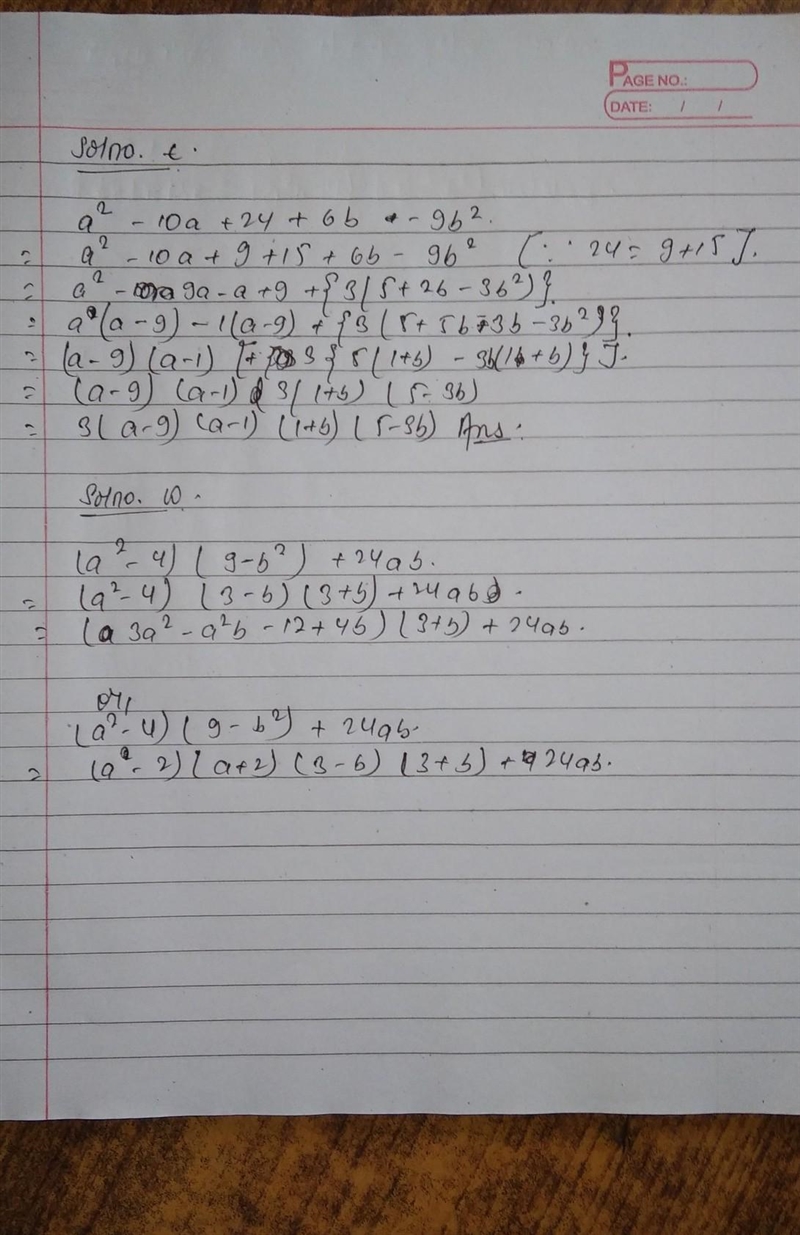 PAGE NO.:
DATE: / /
Soln o. t.
a² - 10a + 24 + 6b - 9b².
= a² - 10a + 9 + 15 + 6b - 9b² [∵ 24 = 9+15].
= a² - 9a - a + 9 + {3(5 + 2b - 3b²)}.
= a(a - 9) - 1(a-9) + {3(5 + 5b - 3b - 3b²)}.
= (a - 9) (a-1) [+ 3 {5(1+b) - 3b(1+b)}].
= (a-9) (a-1) 3(1+b) (5-3b)
= 3(a-9) (a-1) (1+b) (5-3b) Ans:
Soln o. w.
(a² - 4) (9-b²) + 24ab.
= (a² - 4) (3 - b) (3+b) + 24ab.
= (3a² - a²b - 12 + 4b) (3+b) + 24ab.
or,
(a² - 4) (9 - b²) + 24ab.
= (a - 2) (a+2) (3 - b) (3+b) + 24ab.